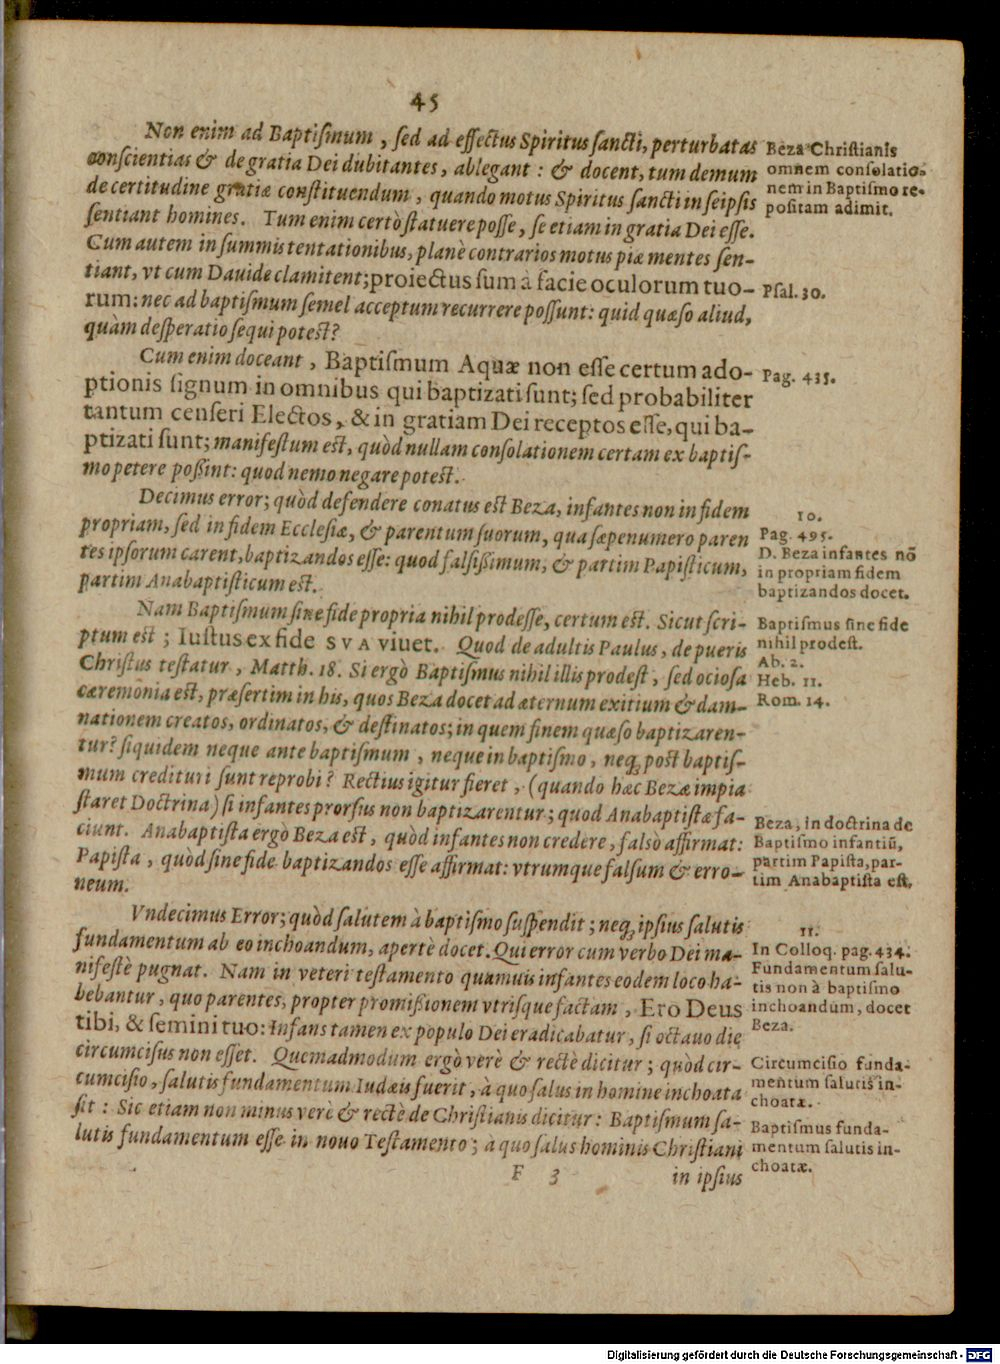 45
Non enim ad Baptiſmum, ſed ad effectus Spiritus ſancti, perturbatas
conſcientias & de gratia Dei dubitantes, ablegant: & docent, tum demum
de certitudine gratiæ conſtituendum, quando motus Spiritus ſancti in ſeipſis
ſentiant homines. Tum enim certò ſtatuere poſſe, ſe etiam in gratia Dei eſſe.
Cum autem in ſummis tentationibus, planè contrarios motus piæ mentes ſen-
tiant, vt cum Dauide clamitent; proiectus ſum à facie oculorum tuo-
rum: nec ad baptiſmum ſemel acceptum recurrere poſſunt: quid quæſo aliud,
quàm deſperatio ſequi poteſt?
Beza Chriſtianis
omnem conſolatio-
nem in Baptiſmo re-
poſitam adimit.
Pſal. 30.
Cum enim doceant, Baptiſmum Aquæ non eſſe certum ado-
ptionis ſignum in omnibus qui baptizati ſunt; ſed probabiliter
tantum cenſeri Electos, & in gratiam Dei receptos eſſe, qui ba-
ptizati ſunt; manifeſtum eſt, quòd nullam conſolationem certam ex baptiſ-
mo petere poßint: quod nemo negare poteſt.
Pag. 435.
Decimus error; quòd defendere conatus eſt Beza, infantes non in fidem
propriam, ſed in fidem Eccleſiæ, & parentum ſuorum, qua ſæpenumero paren
tes ipſorum carent, baptizandos eſſe: quod falſißimum, & partim Papiſticum,
partim Anabaptiſticum eſt.
10.
Pag. 495.
D. Beza infantes nō
in propriam fidem
baptizandos docet.
Nam Baptiſmum ſine fide propria nihil prodeſſe, certum eſt. Sicut ſcri-
ptum eſt; Iuſtus ex fide SVA viuet. Quod de adultis Paulus, de pueris
Chriſtus teſtatur, Matth. 18. Si ergò Baptiſmus nihil illis prodeſt, ſed ocioſa
cæremonia eſt, præſertim in his, quos Beza docet ad æternum exitium & dam-
nationem creatos, ordinatos, & deſtinatos; in quem finem quæſo baptizaren-
tur? ſiquidem neque ante baptiſmum, neque in baptiſmo, neq; poſt baptiſ-
mum credituri ſunt reprobi? Rectius igitur fieret, (quando hæc Bezæ impia
ſtaret Doctrina) ſi infantes prorſus non baptizarentur; quod Anabaptiſtæ fa-
ciunt. Anabaptiſta ergò Beza eſt, quòd infantes non credere, falsò affirmat:
Papiſta, quòd ſine fide baptizandos eſſe affirmat: vtrumque falſum & erro-
neum.
Baptiſmus ſine fide
nihil prodeſt.
Ab. 2.
Heb. 11.
Rom. 14.
Beza, in doctrina de
Baptiſmo infantiū,
partim Papiſta, par-
tim Anabaptiſta eſt.
Vndecimus Error; quòd ſalutem à baptiſmo ſuſpendit; neq; ipſius ſalutis
fundamentum ab eo inchoandum, apertè docet. Qui error cum verbo Dei ma-
nifeſtè pugnat. Nam in veteri teſtamento quamuis infantes eodem loco ha-
bebantur, quo parentes, propter promißionem vtriſque factam, Ero Deus
tibi, & ſemini tuo: Infans tamen ex populo Dei eradicabatur, ſi octauo die
circumciſus non eſſet. Quemadmodum ergò verè & rectè dicitur; quòd cir-
cumciſio, ſalutis fundamentum Iudæis fuerit, à quo ſalus in homine inchoata
ſit: Sic etiam non minus verè & rectè de Chriſtianis dicitur: Baptiſmum ſa-
lutis fundamentum eſſe in nouo Teſtamento; à quo ſalus hominis Chriſtiani
11.
In Colloq. pag. 434.
Fundamentum ſalu-
tis non à baptiſmo
inchoandum, docet
Beza.
Circumciſio funda-
mentum ſalutis in-
choatæ.
Baptiſmus funda-
mentum ſalutis in-
choatæ.
F 3
in ipſius
Digitalisierung gefördert durch die Deutsche Forschungsgemeinschaft - DFG